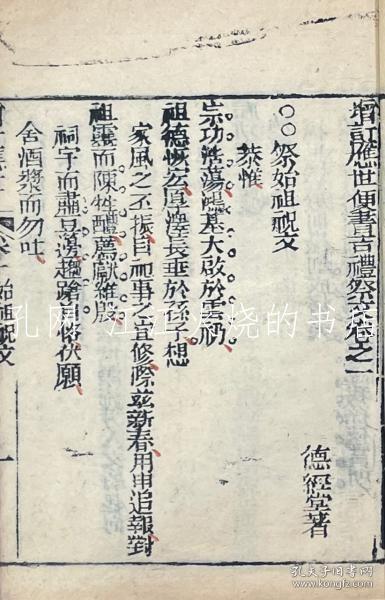 增訂應世便書吉禮祭文卷之一
德經堂著
○○祭始祖祝文
恭惟
宗功浩蕩鴻基大啟於雲礽
祖德恢宏厚澤長垂於孫子想
家風之丕振自祀事之宜修際茲新春用申追報對
祖靈而陳牲醴薦獻雖殷
祠宇而肅豆籩趨蹌恪伏願
舍酒漿而勿吐
卷一 始祖祝文 一
孔网 江江晨烧的书籍
孔夫子旧书网